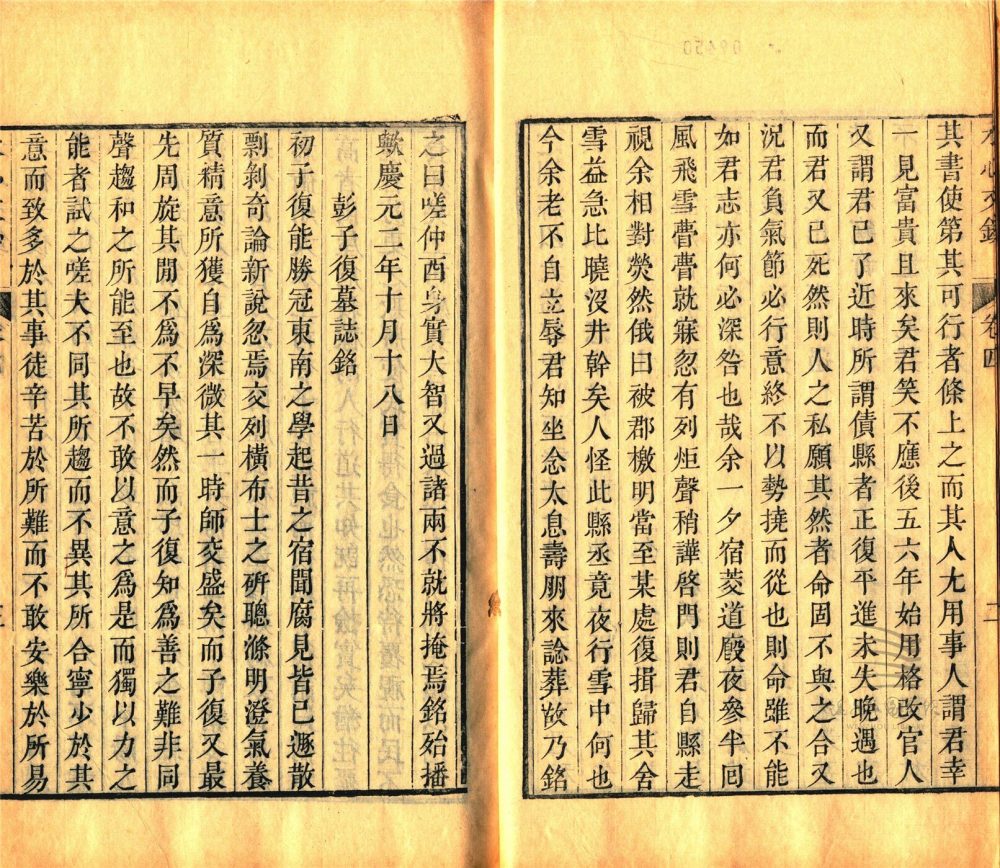 其書使第其可行者條上之而其人尢用事人謂君幸
一見富貴且來矣君笑不應後五六年始用格改官人
又謂君已了近時所謂債縣者正復平進未失晚遇也
而君又已死然則人之私願其然者命固不與之合又
況君負氣節必行意終不以勢撓而從也則命雖不能
如君志亦何必深咎也哉余一夕宿菱道廢夜參半囘
風飛雪瞢瞢就寐忽有列炬聲稍譁啓門則君自縣走
視余相對熒然俄曰被郡檄明當至某處復揖歸其舍
雪益急比曉沒井幹矣人怪此縣丞竟夜行雪中何也
今余老不自立辱君知坐念太息壽朋來諗葬故乃銘
水心文鈔
卷四
二
之曰嗟仲酉身實大智又過諸兩不就將掩焉銘殆播
歟慶元二年十月十八日
彭子復墓誌銘
初子復能勝冠東南之學起昔之宿聞腐見皆已遯散
剽剝奇論新說忽焉交列橫布士之硏聰滌明澄氣養
質精意所獲自爲深微其一時師交盛矣而子復又最
先周旋其閒不爲不早矣然而子復知爲善之難非同
聲趨和之所能至也故不敢以意之爲是而獨以力之
能者試之嗟夫不同其所趨而不異其所合寧少於其
意而致多於其事徒辛苦於所難而不敢安樂於所易